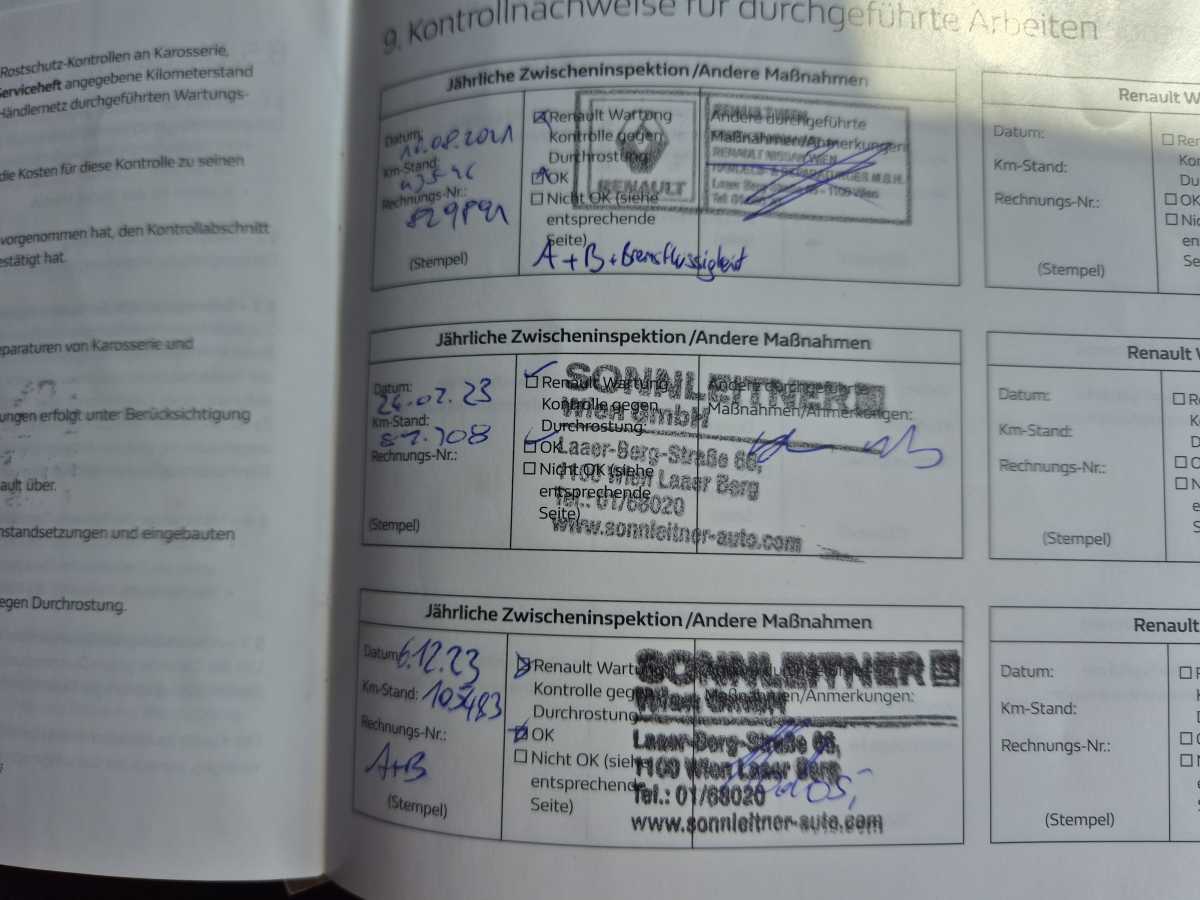 Rostschutz-Kontrollen an Karosserie,
Serviceheft angegebene Kilometerstand
Händlernetz durchgeführten Wartungs-
die Kosten für diese Kontrolle zu seinen
vorgenommen hat, den Kontrollabschnitt
estätigt hat.
eparaturen von Karosserie und
ungen erfolgt unter Berücksichtigung
ault über.
nstandsetzungen und eingebauten
egen Durchrostung.
9. Kontrollnachweise für durchgeführte Arbeiten
Jährliche Zwischeninspektion/Andere Maßnahmen
Datum: 10.08.2021
Km-Stand:
Rechnungs-Nr.:
829891
(Stempel)
Renault Wartung
Kontrolle gegen
Durchrostung:
OK
Nicht OK (siehe
entsprechende
Seite)
A+B+Bremsflüssigkeit
RENAULT
Andere durchgeführte
Maßnahmen/Anmerkungen:
RENAULT NISSAN WIEN
Laaer Berg 1100 Wien
Renault W
Datum:
Km-Stand:
Rechnungs-Nr.:
(Stempel)
Ren
Kon
Du
OK
Nic
en
Se
Jährliche Zwischeninspektion/Andere Maßnahmen
Datum:
24.02.23
Km-Stand:
87.708
Rechnungs-Nr.:
(Stempel)
Renault Wartung
Kontrolle gegen
Durchrostung:
OK
Nicht OK (siehe
entsprechende
Seite)
Andere durchgeführte
Maßnahmen/Anmerkungen:
SONNLEITNER
Wien GmbH
Laaer-Berg-Straße 66,
1100 Wien Laaer Berg
Tel.: 01/68020
www.sonnleitner-auto.com
Renault V
Datum:
Km-Stand:
Rechnungs-Nr.:
(Stempel)
Jährliche Zwischeninspektion/Andere Maßnahmen
Datum: 6.12.23
Km-Stand: 105483
Rechnungs-Nr.:
A+B
(Stempel)
Renault Wartung
Kontrolle gegen
Durchrostung:
OK
Nicht OK (siehe
entsprechende
Seite)
Maßnahmen/Anmerkungen:
SONNLEITNER
Wien GmbH
Laaer-Berg-Straße 66,
1100 Wien Laaer Berg
Tel.: 01/68020
www.sonnleitner-auto.com
Renault
Datum:
Km-Stand:
Rechnungs-Nr.:
(Stempel)